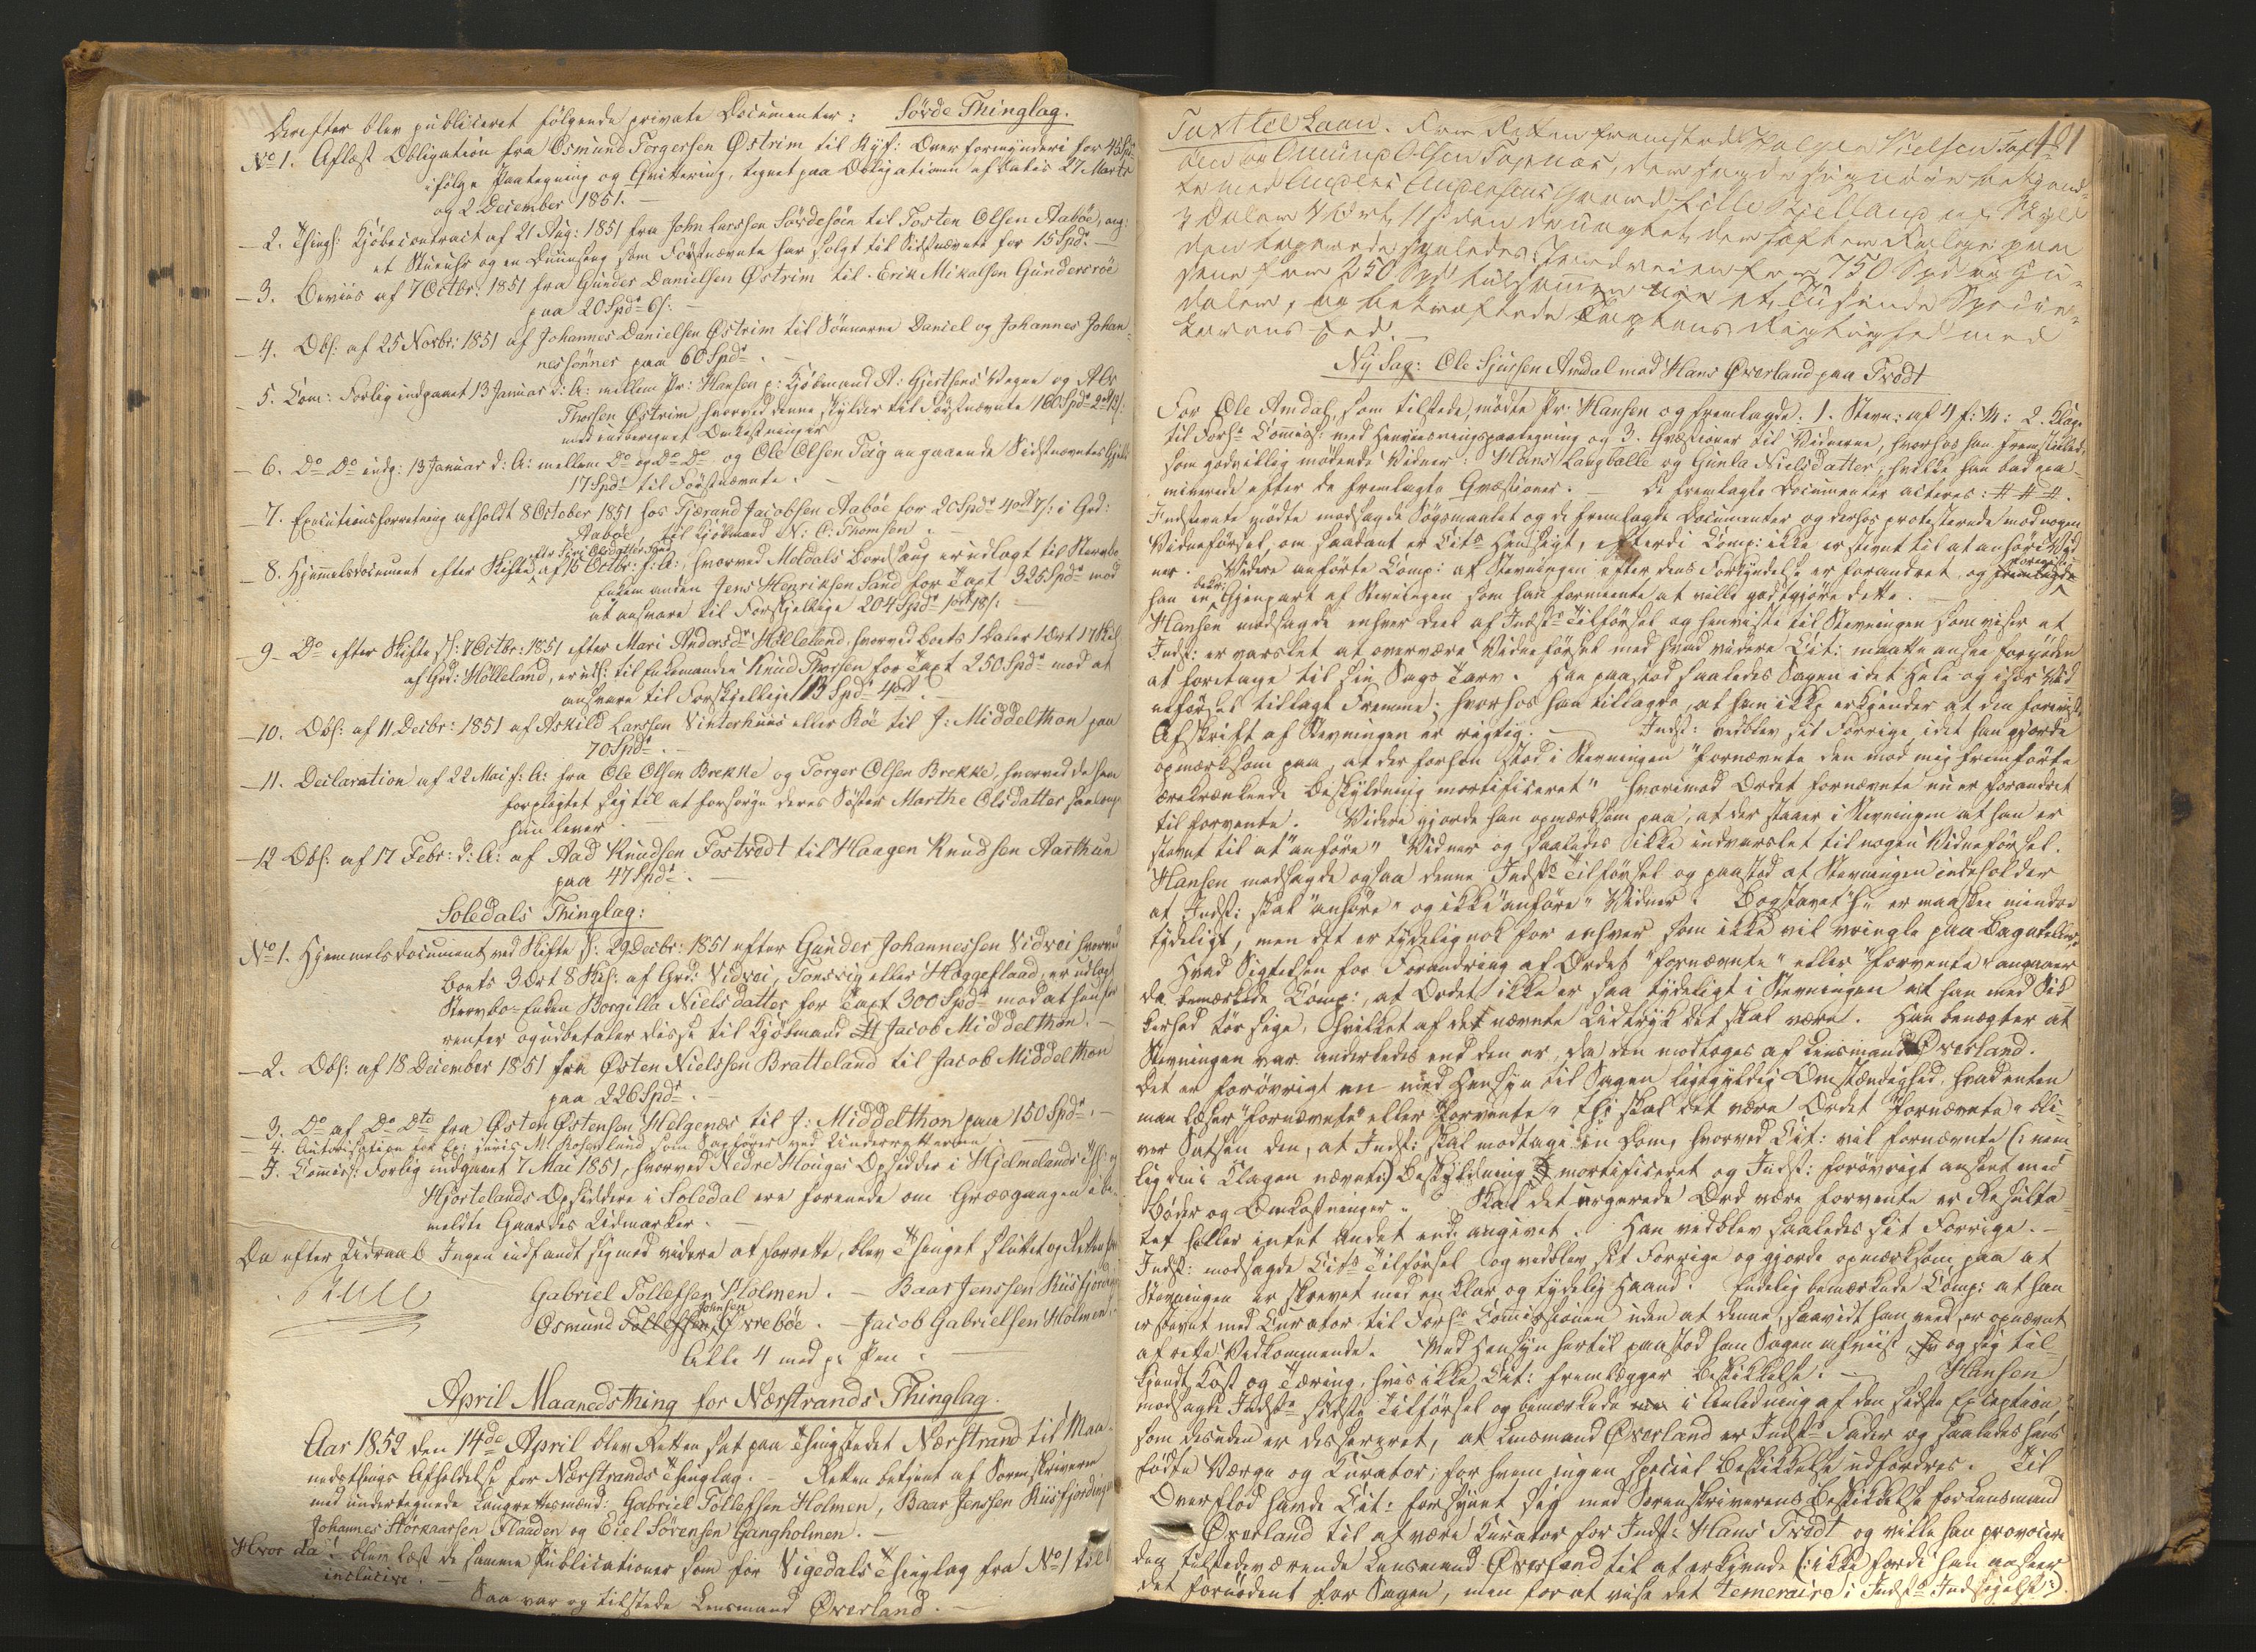 Derefter blev publiceret følgende private Documenter: Sövde Thinglag.
No 1. Aflæst Obligation fra Osmund Torgersen Østrim til Ryf: Overformynderi for 45 Spd
ifølge Paategning og Qvittering, tegnet paa Obligationen af Datis 27 Marts
og 2 December 1851. —
— 2. Thingl: Kjöbecontract af 21 Aug: 1851 fra John Larssen Sövdesöen til Torsten Olsen Aaböe, ang:
et Stueuhr og en Duunseng som Förstnævnte har solgt til Sidstnævnte for 15 Spd. —
— 3. Beviis af 7 Octbr: 1851 fra Gunder Danielsen Østrim til Erik Mikalsen Gundersröe
paa 20 Spd 6 s: —
— 4. Obl: af 25 Novbr: 1851 af Johannes Danielsen Østrim til Sønnerne Daniel og Johannes Johan-
nessönner paa 60 Spd. —
— 5. Com: Forlig indgaaet 13 Januar d: A: mellem Pr: Hansen p: Kjöbmand A: Gjertsens Vegne og Ole
Thorsen Østrim, hvorved denne skylder til Förstnævnte 160 Spd 2 ort 12 s:
med iberegnet Omkostninger
— 6. Do Do indg: 13 Januar d: A: mellem Do og Do Do og Ole Olsen Teig angaaende Sidstnævntes Gjeld
17 Spd til Förstnævnte. —
— 7. Executionsforretning afholdt 8 October 1851 hos Tjerand Jacobsen Aaböe for 20 Spd 4 ort 7 s: i Grd:
Aaböe til Kjöbmand N: C: Thomsen.
— 8. Hjemmelsdocument efter Skifte efter Siri Olsdatter Sand af 15 Octbr: f: A:, hvorved Moldals Bordsaug er udlagt til Stervbo
Enkemanden Jens Henriksen Sand for Taxt 325 Spd mod
at ansvare til Forskjellige 204 Spd 1 ort 18 s: —
— 9 — Do efter Skifte sl: 7 Octbr: 1851 efter Mari Andersdr Hölleland, hvorved Boets 1 Daler 1 Ort 17 Skil
af Grd: Hölleland, er udl: til Enkemanden Knud Thorsen for Taxt 250 Spd mod at
ansvare til Forskjellige 113 Spd 4 ort. —
— 10. Obl: af 11 Decbr: 1851 af Askild Larssen Vinterhuus eller Röe til J: Middelthon paa
70 Spd. —
— 11. Declaration af 22 Mai f: A: fra Ole Olsen Brekke og Torger Olsen Brekke, hvorved de have
forpligtet sig til at forsørge deres Søster Marthe Olsdatter saalænge
hun lever. —
— 12 Obl: af 17 Febr: d: A: af Aad Knudsen Fostvedt til Haagen Knudsen Aarthun
paa 47 Spd. —
Soledals Thinglag:
No 1. Hjemmelsdocument ved Skifte sl: 29 Decbr: 1851 efter Gunder Johannessen Vidvei hvorved
Boets 3 Ort 8 Sk: af Grd: Vidvei, Torsvig eller Hoggeflaad, er udlagt
Stervbo-Enken Borgilla Nielsdatter for Taxt 300 Spd mod at hun for-
renter og udbetaler disse til Kjöbmand Jacob Middelthon. —
— 2. Obl: af 18 December 1851 fra Østen Nielssen Bratteland til Jacob Middelthon
paa 226 Spd. —
— 3. Do af Do Dto fra Østen Østenson Helgenæs til J: Middelthon paa 150 Spd. —
— 4. Autorisation for Ex: juris M. Rosenlund som Sagfører ved Underretterne —
— 5. Commiss: Forlig indgaaet 7 Mai 1851, hvorved Nedre Houges Opsiddere i Hjelmelands Thl: og
Hjortelands Opsiddere i Soledal ere forenede om Græsgangen i be-
meldte Gaardes Udmarker. —
Da efter Udraab Ingen indfandt sig med videre at forrette, blev Thinget sluttet og Retten hævet
Gabriel Tollefsen Holmen. — Baar Jenssen Riisfjording
Osmund Johnsen Vrebøe. — Jacob Gabrielsen Holmen.
Alle 4 med p: Pen. —
April Maanedsthing for Nærstrands Thinglag.
Aar 1852 den 14de April blev Retten sat paa Thingstedet Nærstrand til Maa-
nedsthings Afholdelse for Nærstrands Thinglag. — Retten betjent af Sorenskriveren
med undertegnede Laugrettesmænd: Gabriel Tollefsen Holmen, Baar Jenssen Riisfjordingen
Johannes Storkaarsen Flauden og Eiel Sörensen Gangholmen. —
Hvor da: blev læst de samme Publicationer som for Vigedals Thinglag fra No 1 til
inclusive. —
Saa var og tilstede Lensmand Øverland. —
101
Taxt til Laan. For Retten fremstod Helge Nielsen
og Omund Olsen Tapnæs, de
med Anders Andersens Gaard Lille Skjelland af Skyld
2 Daler 4 Ort 11 s
den taxerede saaledes: Jordveien for 750 Spd og Hu-
sene for 250 Spd tilsammen et Tusinde Specie-
daler, og bekræftede Taxtens Rigtighed med
Lovens Eed. —
Ny Sag: Ole Sjursen Amdal mod Hans Øverland paa Tvedt
For Ole Amdal, som tilstede, mödte Pr: Hansen og fremlagde. 1. Stevn: af 4 f: M: 2. Klage
til Forls Commiss: med Henviisningspaategning og 3. Qvæstioner til Vidnerne, hvorhos han fremstillede
som godvillig mødende Vidner: Hans Langballe og Gunla Nielsdatter, hvilke han bad exa-
minerede efter de fremlagte Qvæstioner. — De fremlagte Documenter acteres: # # #.
Indstevnte mödte modsagde Sögsmaalet og de fremlagte Documenter og derhos protesterende mod nogen
Vidneförsel, om saadant er Cits Hensigt, efterdi Comp: ikke er stevnt til at anhöre Vid-
ner. Videre anförte Comp: at Stevningen efter dens Forkyndelse er forandret og foreviste
han en bekr: Gjenpart af Stevningen som han formeente at ville godtgjöre dette. —
Hansen modsagde enhver Deel af Indsts Tilførsel og henviste til Stevningen som viser at
Indst: er varslet at overvære Vidneförsel med hvad videre Cit: maatte ansee fornöden
at foretage til sin Sags Tarv. Han paastod saaledes Sagen i det Hele og især Vid-
neförsel tillagt Fremme; hvorhos han tillagde, at han ikke erkjender at den foreviste
Afskrift af Stevningen er rigtig. — Indst: vedblev sit Forrige, idet han gjorde
opmærksom paa, at der forhen stod i Stevningen "fornævnte den mod mig fremförte
ærekrænkende Beskyldning mortificeret" hvorimod Ordet fornævnte nu er forandret
til forvente. Videre gjorde han opmærksom paa, at der staaer i Stevningen at han er
stevnt til at "anføre" Vidner og saaledes ikke indvarslet til nogen Vidneförsel.
Hansen modsagde ogsaa denne Indsts Tilförsel og paastod at Stevningen indeholder
at Indst: skal "anhöre" og ikke "anføre" Vidner. Bogstavet "h" er maaskee mindre
tydeligt, men dt er tydelig nok for enhver som ikke vil vringle paa Bagateller.
Hvad Sigtelsen for Forandring af Ordet "fornævnte" eller "forvente" angaaer
da bemærkede Comp:, at Ordet ikke er saa tydeligt i Stevningen at han med Sik-
kerhed tör sige, hvilket af det nævnte Udtryk det skal være. Han benægter at
Stevningen var anderledes end den er, da den modtoges af Lensmand Øverland.
Det er forövrigt en med Hensyn til Sagen ligegyldig Omstændighed, hvad enten
man læser "fornævnte" eller "forvente" thi skal det være Ordet "fornævnte" bli-
ver Satsen den, at Indst: skal modtage en Dom, hvorved Cit: vil fornævnte (: nem-
lig den i Klagen nævnte) Beskyldning mortificeret og Indst: forövrigt anseet med
Böder og Omkostninger. Skal det urgerede Ord være forvente er Resulta-
tet heller intet Andet end angivet. Han vedblev saaledes sit Forrige. —
Indst: modsagde Cits Tilförsel og vedblev sit Forrige og gjorde opmærksom paa at
Stevningen er skrevet med en klar og tydelig Haand. Endelig bemærkede Comp: at han
er stevnt med Curator til Forls Commissionen uden at denne, saavidt han veed, er opnævnt
af rette Vedkommende. Med Hensyn hertil paastod han Sagen afviist og sig til-
kjendt Kost og Tæring, hvis ikke Cit: fremlægger Beskikkelse. — Hansen
modsagde Indsts sidste Tilförsel og bemærkede i Anledning af den sidste Exception,
som desuden er desserveret, at Lensmand Øverland er Indsts Fader og saaledes hans
födte Værge og Curator; for hvem ingen speciel Beskikkelse udfordres. Til
Overflod havde Cit: forsynet sig med Sorenskriverens Beskikkelse for Lensmand
Øverland til at være Curator for Indst: Hans Tvedt og vilde han provocere
den tilstedeværende Lensmand Øverland til at erkjende (: ikke fordi han anseer
det fornödent for Sagen, men for at vise det temeraire i Indsts Indsigelse:).